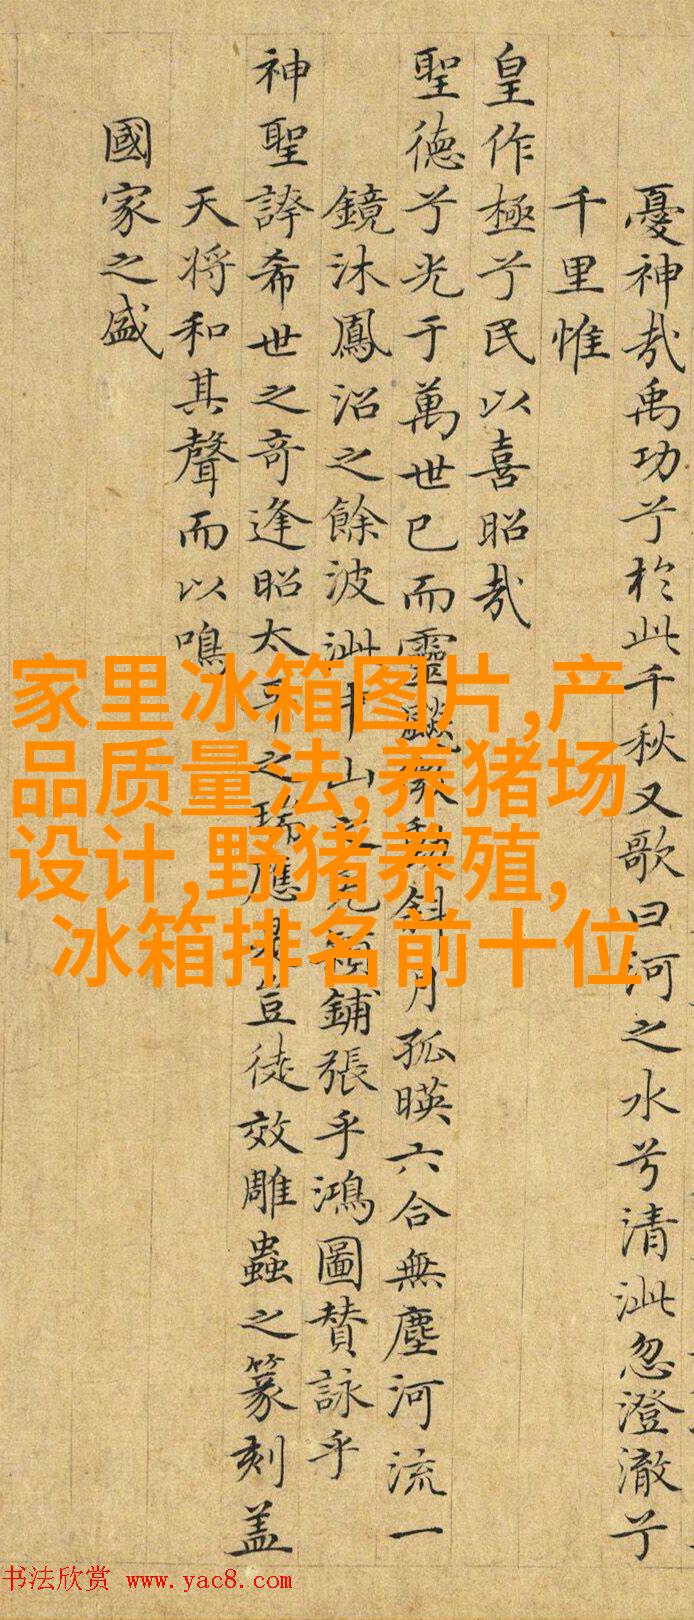 憂神哉禹功兮於此千秋又歌曰河之水兮清泚忽澄澈兮
千里惟
皇作極兮民以喜昭哉
聖德兮光于萬世已而靈飈微動斜月孤暎六合無塵河流一
鏡沐鳳沼之餘波泚山見鋪張乎鴻圖賛詠乎
神聖誇希世之奇逢昭太之瑞應豈徒效雕蟲之篆刻盖
天将和其聲而以鳴
國家之盛
家里冰箱图片,产
品质量法,养猪场
设计,野猪养殖,
冰箱排名前十位
书法欣赏 www.yac8.com